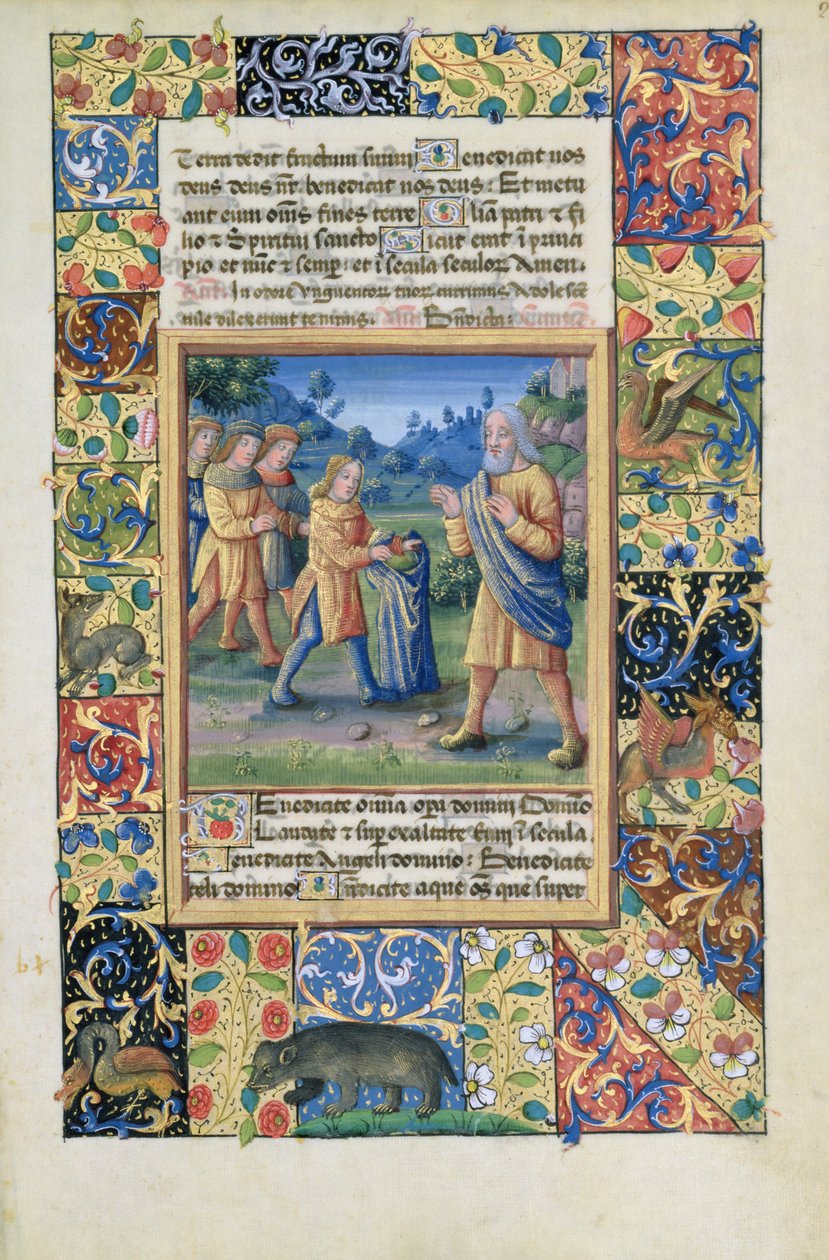 Terra dedit fructum suum Benedicat nos
deus deus nr benedicat nos deus : Et metu
ant eum oms fines terre Glia patri & fi
lio & Spiritui sancto Sicut erat i princi
pio et nuc & semp et i secula seculor Amen.
In odore vnguentor tuor currimus Adolescen
tule dilexerunt te nimis. Bndicta :
Benedicite omnia opa domini Domino
Laudate & supexaltate eum i secula
Benedicite Angeli domino : Benedicite
celi domino Bndicite aque os que super